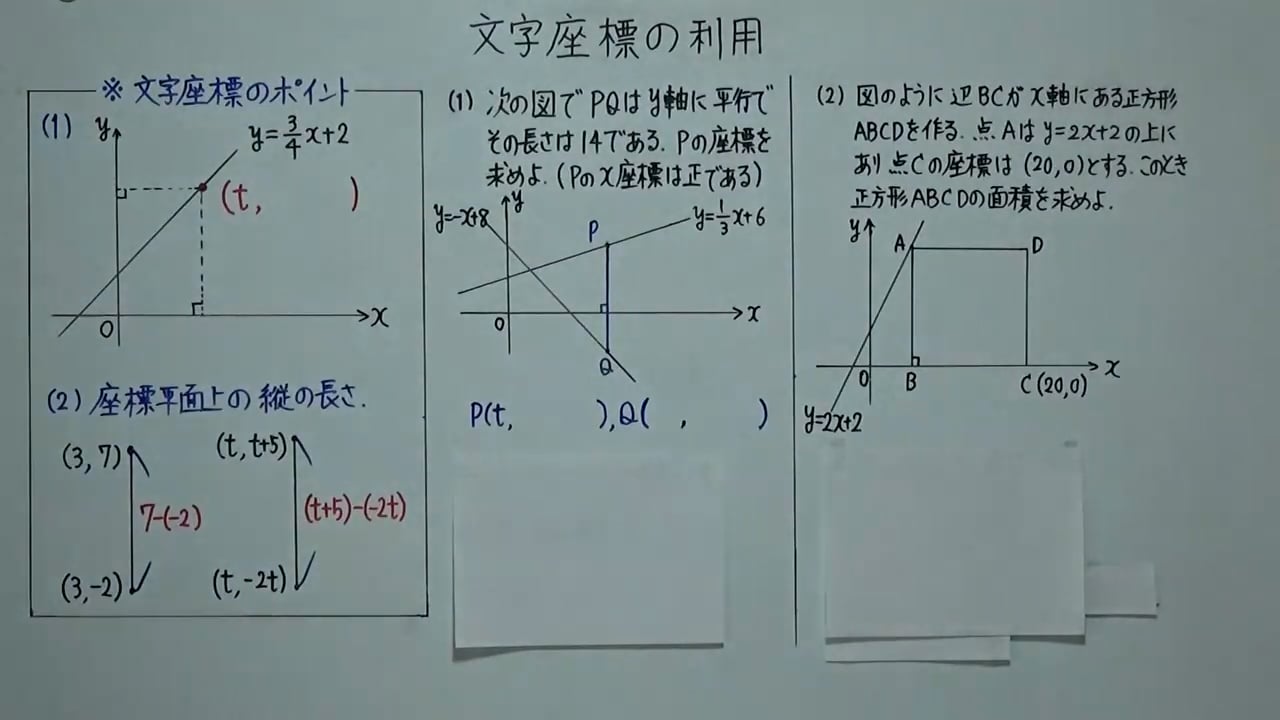 文字座標の利用
※文字座標のポイント
(1)
y
y=3/4x+2
(t,　　)
O
x
(2) 座標平面上の縦の長さ.
(3, 7)
7-(-2)
(3,-2)
(t, t+5)
(t+5)-(-2t)
(t, -2t)
(1) 次の図でPQはy軸に平行で
その長さは14である. Pの座標を
求めよ.(Pのx座標は正である)
y=-x+8
y
P
y=1/3x+6
O
x
Q
P(t,　　),Q(　,　　)
(2) 図のように辺BCがx軸にある正方形
ABCDを作る. 点Aはy=2x+2の上に
あり点Cの座標は(20,0)とする.このとき
正方形ABCDの面積を求めよ.
y
A
D
O
B
C(20,0)
x
y=2x+2